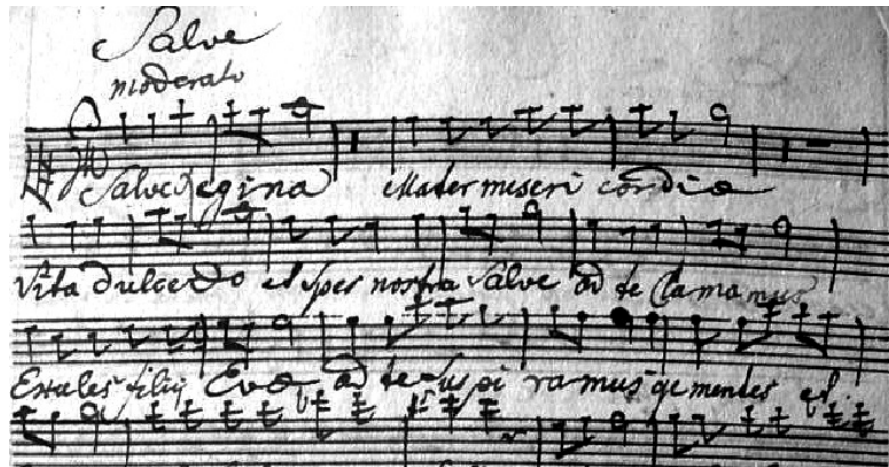 Salve
moderato
Salve Regina Mater miseri cordiæ
Vita dulcedo et spes nostra Salve ad te Clamamus
Exules filij Evæ ad te Suspi ramus gementes et